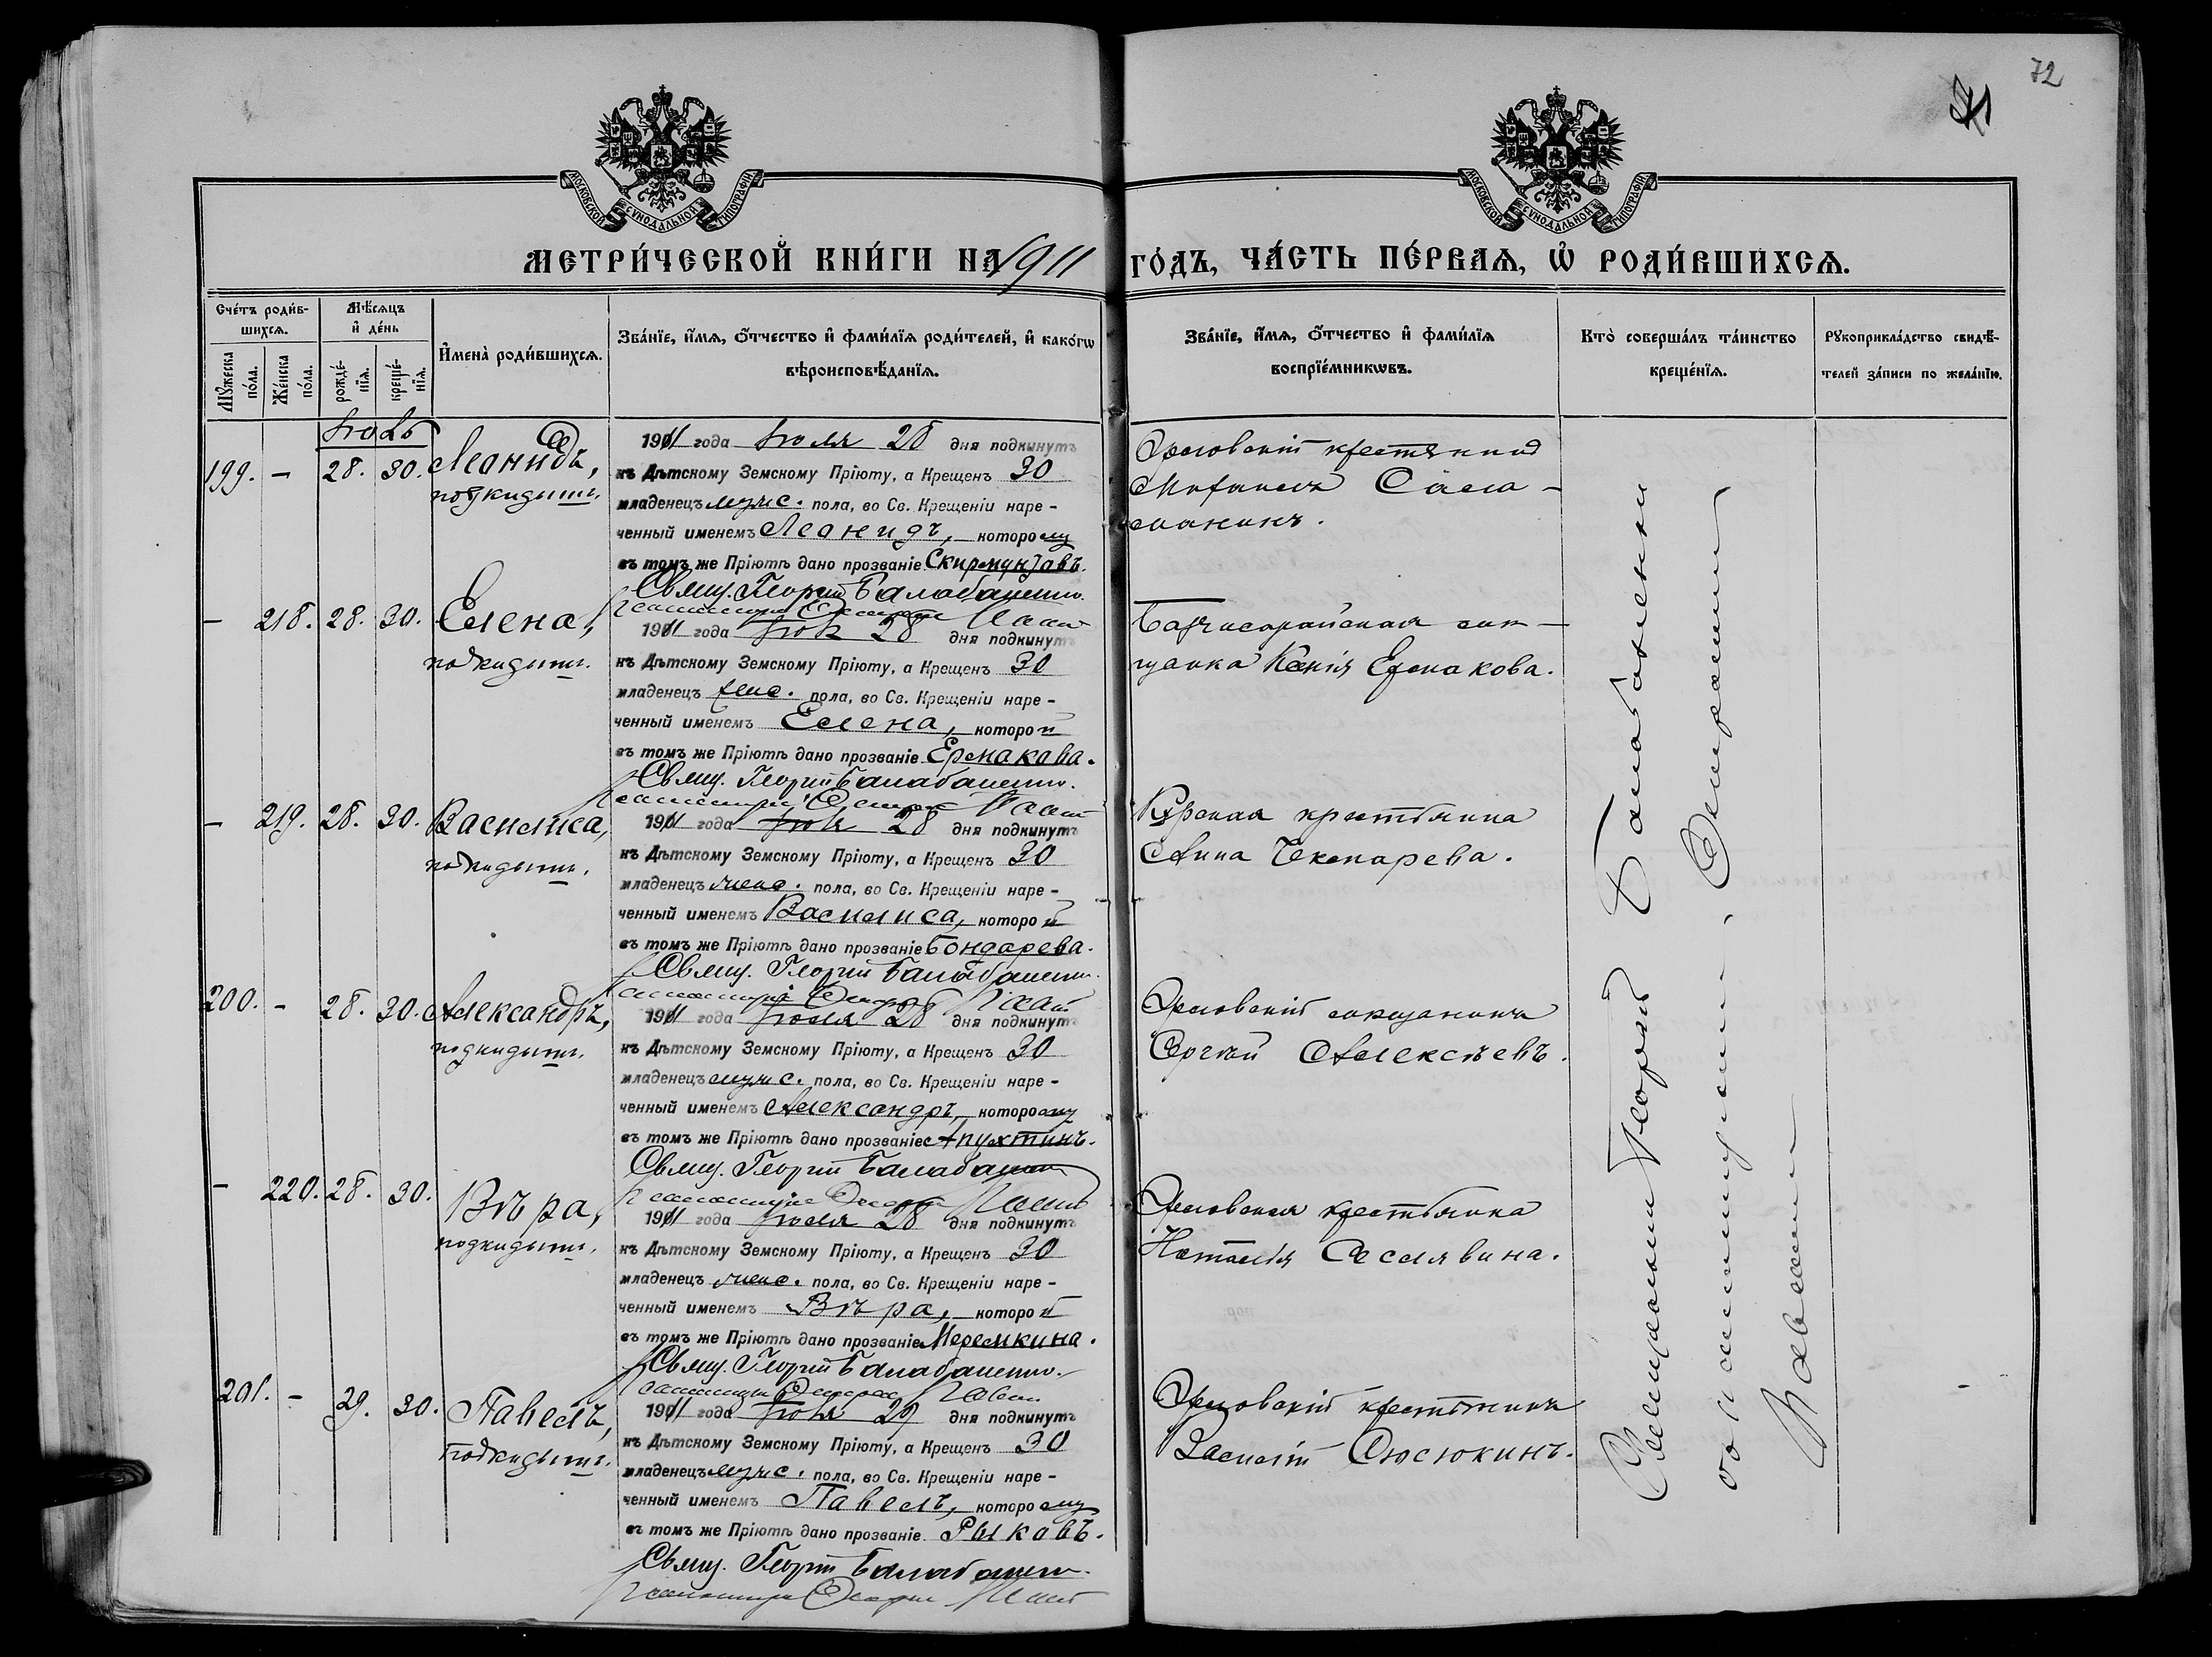 72
МОСКОВСКОЙ СѴНОДАЛЬНОЙ ТИПОГРАФІИ
МОСКОВСКОЙ СѴНОДАЛЬНОЙ ТИПОГРАФІИ
МЕТРИ́ЧЕСКОЙ КНИ́ГИ НА 1911 ГО́ДЪ, ЧА́СТЬ ПЕ́РВАѦ, Ѡ҆ РОДИ́ВШИХСѦ.
Сче́тъ роди́в-
шихсѧ.
Мꙋ́жеска по́ла.
Же́нска по́ла.
Мѣ́сѧцъ
и҆ де́нь
рожде́-
нїѧ.
креще́-
нїѧ.
И҆мена̀ роди́вшихсѧ.
Зва́нїе, и҆́мѧ, ѻ҆́тчество и҆ фами́лїѧ роди́телей, и҆ како́гѡ
вѣроисповѣ́данїѧ.
Зва́нїе, и҆́мѧ, ѻ҆́тчество и҆ фами́лїѧ
воспрїе́мникѡвъ.
Кто̀ соверша́лъ та́инство
креще́нїѧ.
Рꙋкоприкла́дство свидѣ́-
телей за́писи по жела́нїю.
Іюль
199. — 28. 30. Леонидъ,
подкидышъ.
1911 года Іюля 28 дня подкинутъ
къ Дѣтскому Земскому Пріюту, а Крещенъ 30
младенецъ муж. пола, во Св. Крещеніи наре-
ченный именемъ Леонидъ, которому
въ томъ же Пріютѣ дано прозваніе Скирмунтовъ.
Свящ. Георгій Балабаненко.
Орловскій крестьянинъ
— 218. 28. 30. Елена,
подкидышъ.
1911 года Іюля 28 дня подкинутъ
къ Дѣтскому Земскому Пріюту, а Крещенъ 30
младенецъ жен. пола, во Св. Крещеніи наре-
ченный именемъ Елена, которой
въ томъ же Пріютѣ дано прозваніе Ермакова.
Свящ. Георгій Балабаненко.
Бахчисарайская мѣ-
щанка Ксенія Ермакова.
— 219. 28. 30. Василиса,
подкидышъ.
1911 года Іюля 28 дня подкинутъ
къ Дѣтскому Земскому Пріюту, а Крещенъ 30
младенецъ жен. пола, во Св. Крещеніи наре-
ченный именемъ Василиса, которой
въ томъ же Пріютѣ дано прозваніе Бондарева.
Свящ. Георгій Балабаненко.
Курская крестьянка
Анна Чекмарева.
200. — 28. 30. Александръ,
подкидышъ.
1911 года Іюля 28 дня подкинутъ
къ Дѣтскому Земскому Пріюту, а Крещенъ 30
младенецъ муж. пола, во Св. Крещеніи наре-
ченный именемъ Александръ, которому
въ томъ же Пріютѣ дано прозваніе Апухтинъ.
Свящ. Георгій Балабаненко
Орловскій мѣщанинъ
Сергѣй Алексѣевъ.
— 220. 28. 30. Вѣра,
подкидышъ.
1911 года Іюля 28 дня подкинутъ
къ Дѣтскому Земскому Пріюту, а Крещенъ 30
младенецъ жен. пола, во Св. Крещеніи наре-
ченный именемъ Вѣра, которой
въ томъ же Пріютѣ дано прозваніе Меремкина.
Свящ. Георгій Балабаненко.
Орловская крестьянка
Наталія Сеславина.
201. — 29. 30. Павелъ,
подкидышъ.
1911 года Іюля 29 дня подкинутъ
къ Дѣтскому Земскому Пріюту, а Крещенъ 30
младенецъ муж. пола, во Св. Крещеніи наре-
ченный именемъ Павелъ, которому
въ томъ же Пріютѣ дано прозваніе Рыковъ.
Свящ. Георгій Балабаненко.
Орловскій крестьянинъ
Василій Сюсюкинъ.
Священникъ Георгій Балабаненко